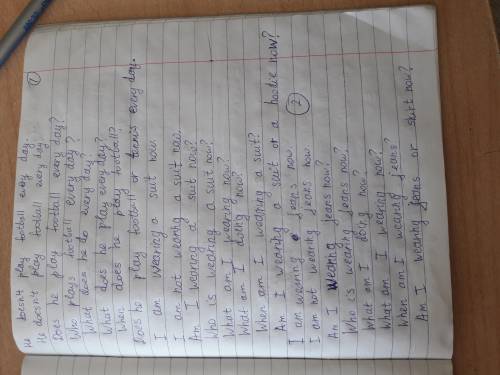 ①
He doesn't play football every day.
He doesn't play football every day
Does he play football every day?
Who plays football every day?
What does he do every day?
What does he play every day?
When does he play football?
Does he play football or tennis every day.
I am wearing a suit now.
I am not wearing a suit now.
Am I wearing a suit now?
Who is wearing a suit now?
What am I wearing now?
What am I doing now?
When am I wearing a suit?
Am I wearing a suit or a hoodie now?
②
I am wearing jeans now.
I am not wearing jeans now
Am I wearing jeans now?
Who is wearing jeans now?
What am I doing now?
What am I wearing now?
When am I wearing jeans?
Am I wearing jeans or skirt now?